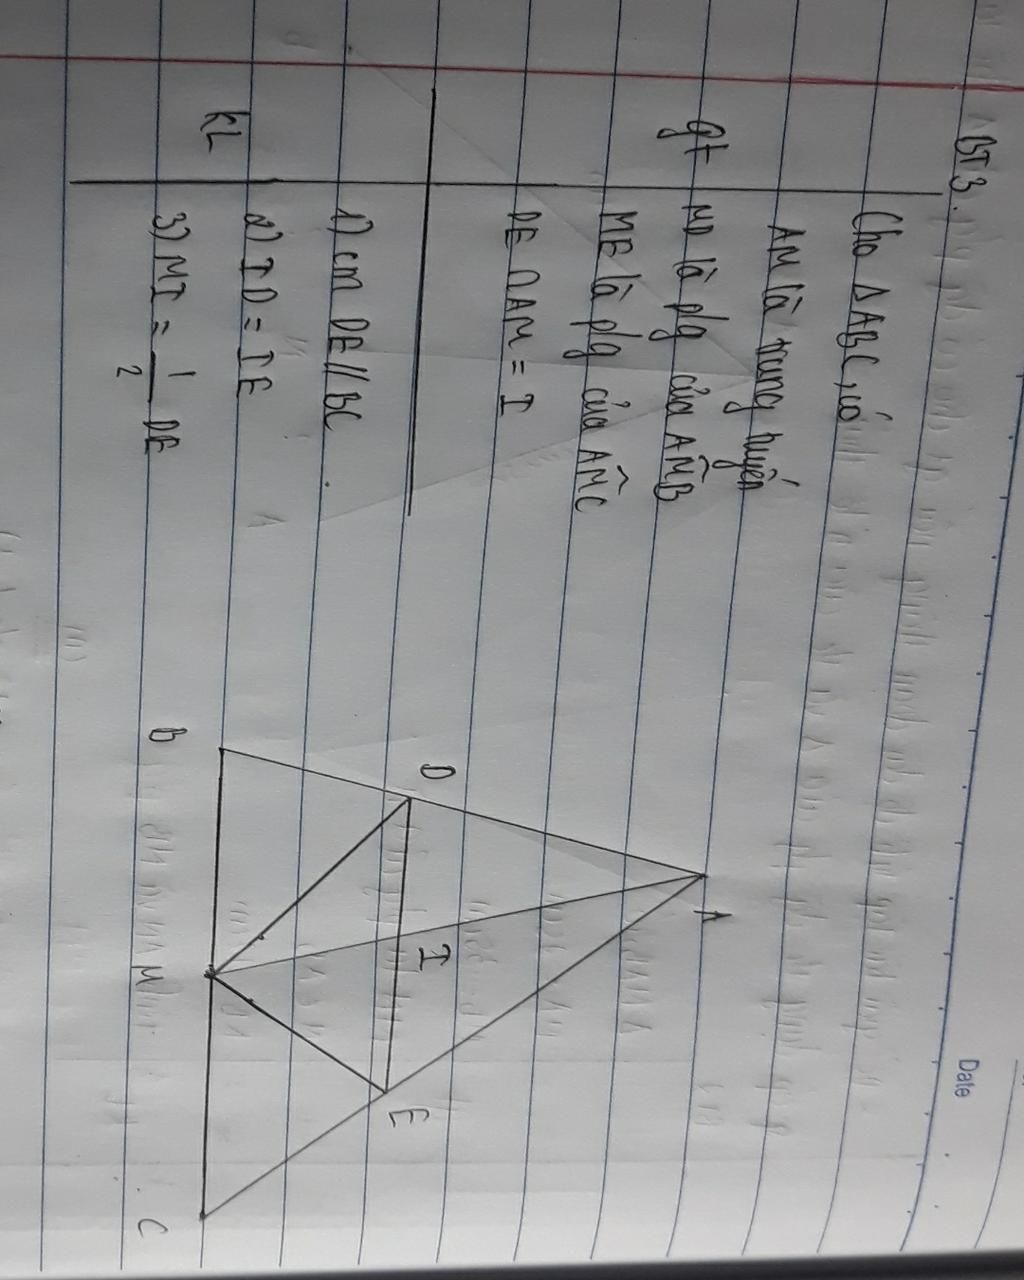 Date
BT3.
Cho ΔABC, có
AM là trung tuyến
gt MD là p/g của AM̂B
ME là p/g của AM̂C
DE ∩ AM = I
1) cm DE // BC
kL 2) ID = IE
3) MI = 1/2 DE
A
D I E
B M C